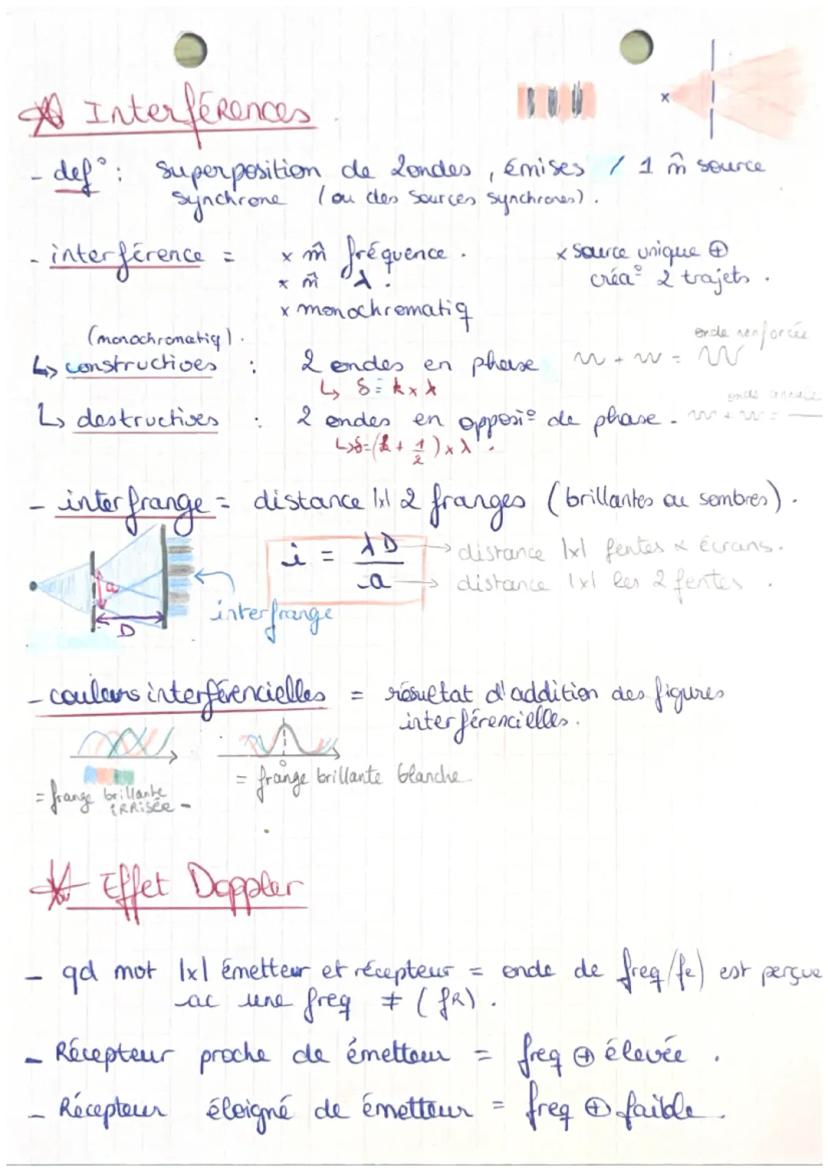 Interférences
- def° : superposition de 2 ondes, émises / 1 m̂ source
synchrone (ou des sources synchrones).
- interférence = x m̂ fréquence. x source unique ⊕
x m̂ λ. créa° 2 trajets.
x monochromatiq
(monochromatiq).
onde renforcée
↳ constructives : 2 ondes en phase
↳ δ = k x λ
↳ destructives : 2 ondes en opposi° de phase.
onde annulée
↳ δ = (k + 1/2) x λ.
- interfrange = distance |x| 2 franges (brillantes ou sombres).
i = λD / a
→ distance |x| fentes & écrans.
→ distance |x| les 2 fentes.
a
D
interfrange
- couleurs interférencielles = résultat d'addition des figures
interférencielles.
0
= frange brillante blanche
= frange brillante
IRRISÉE -
Effet Doppler
- qd mot |x| émetteur et récepteur = onde de freq (fe) est perçue
ac une freq ≠ (fR).
- Récepteur proche de émetteur = freq ⊕ élevée.
- Récepteur éloigné de émetteur = freq ⊕ faible.